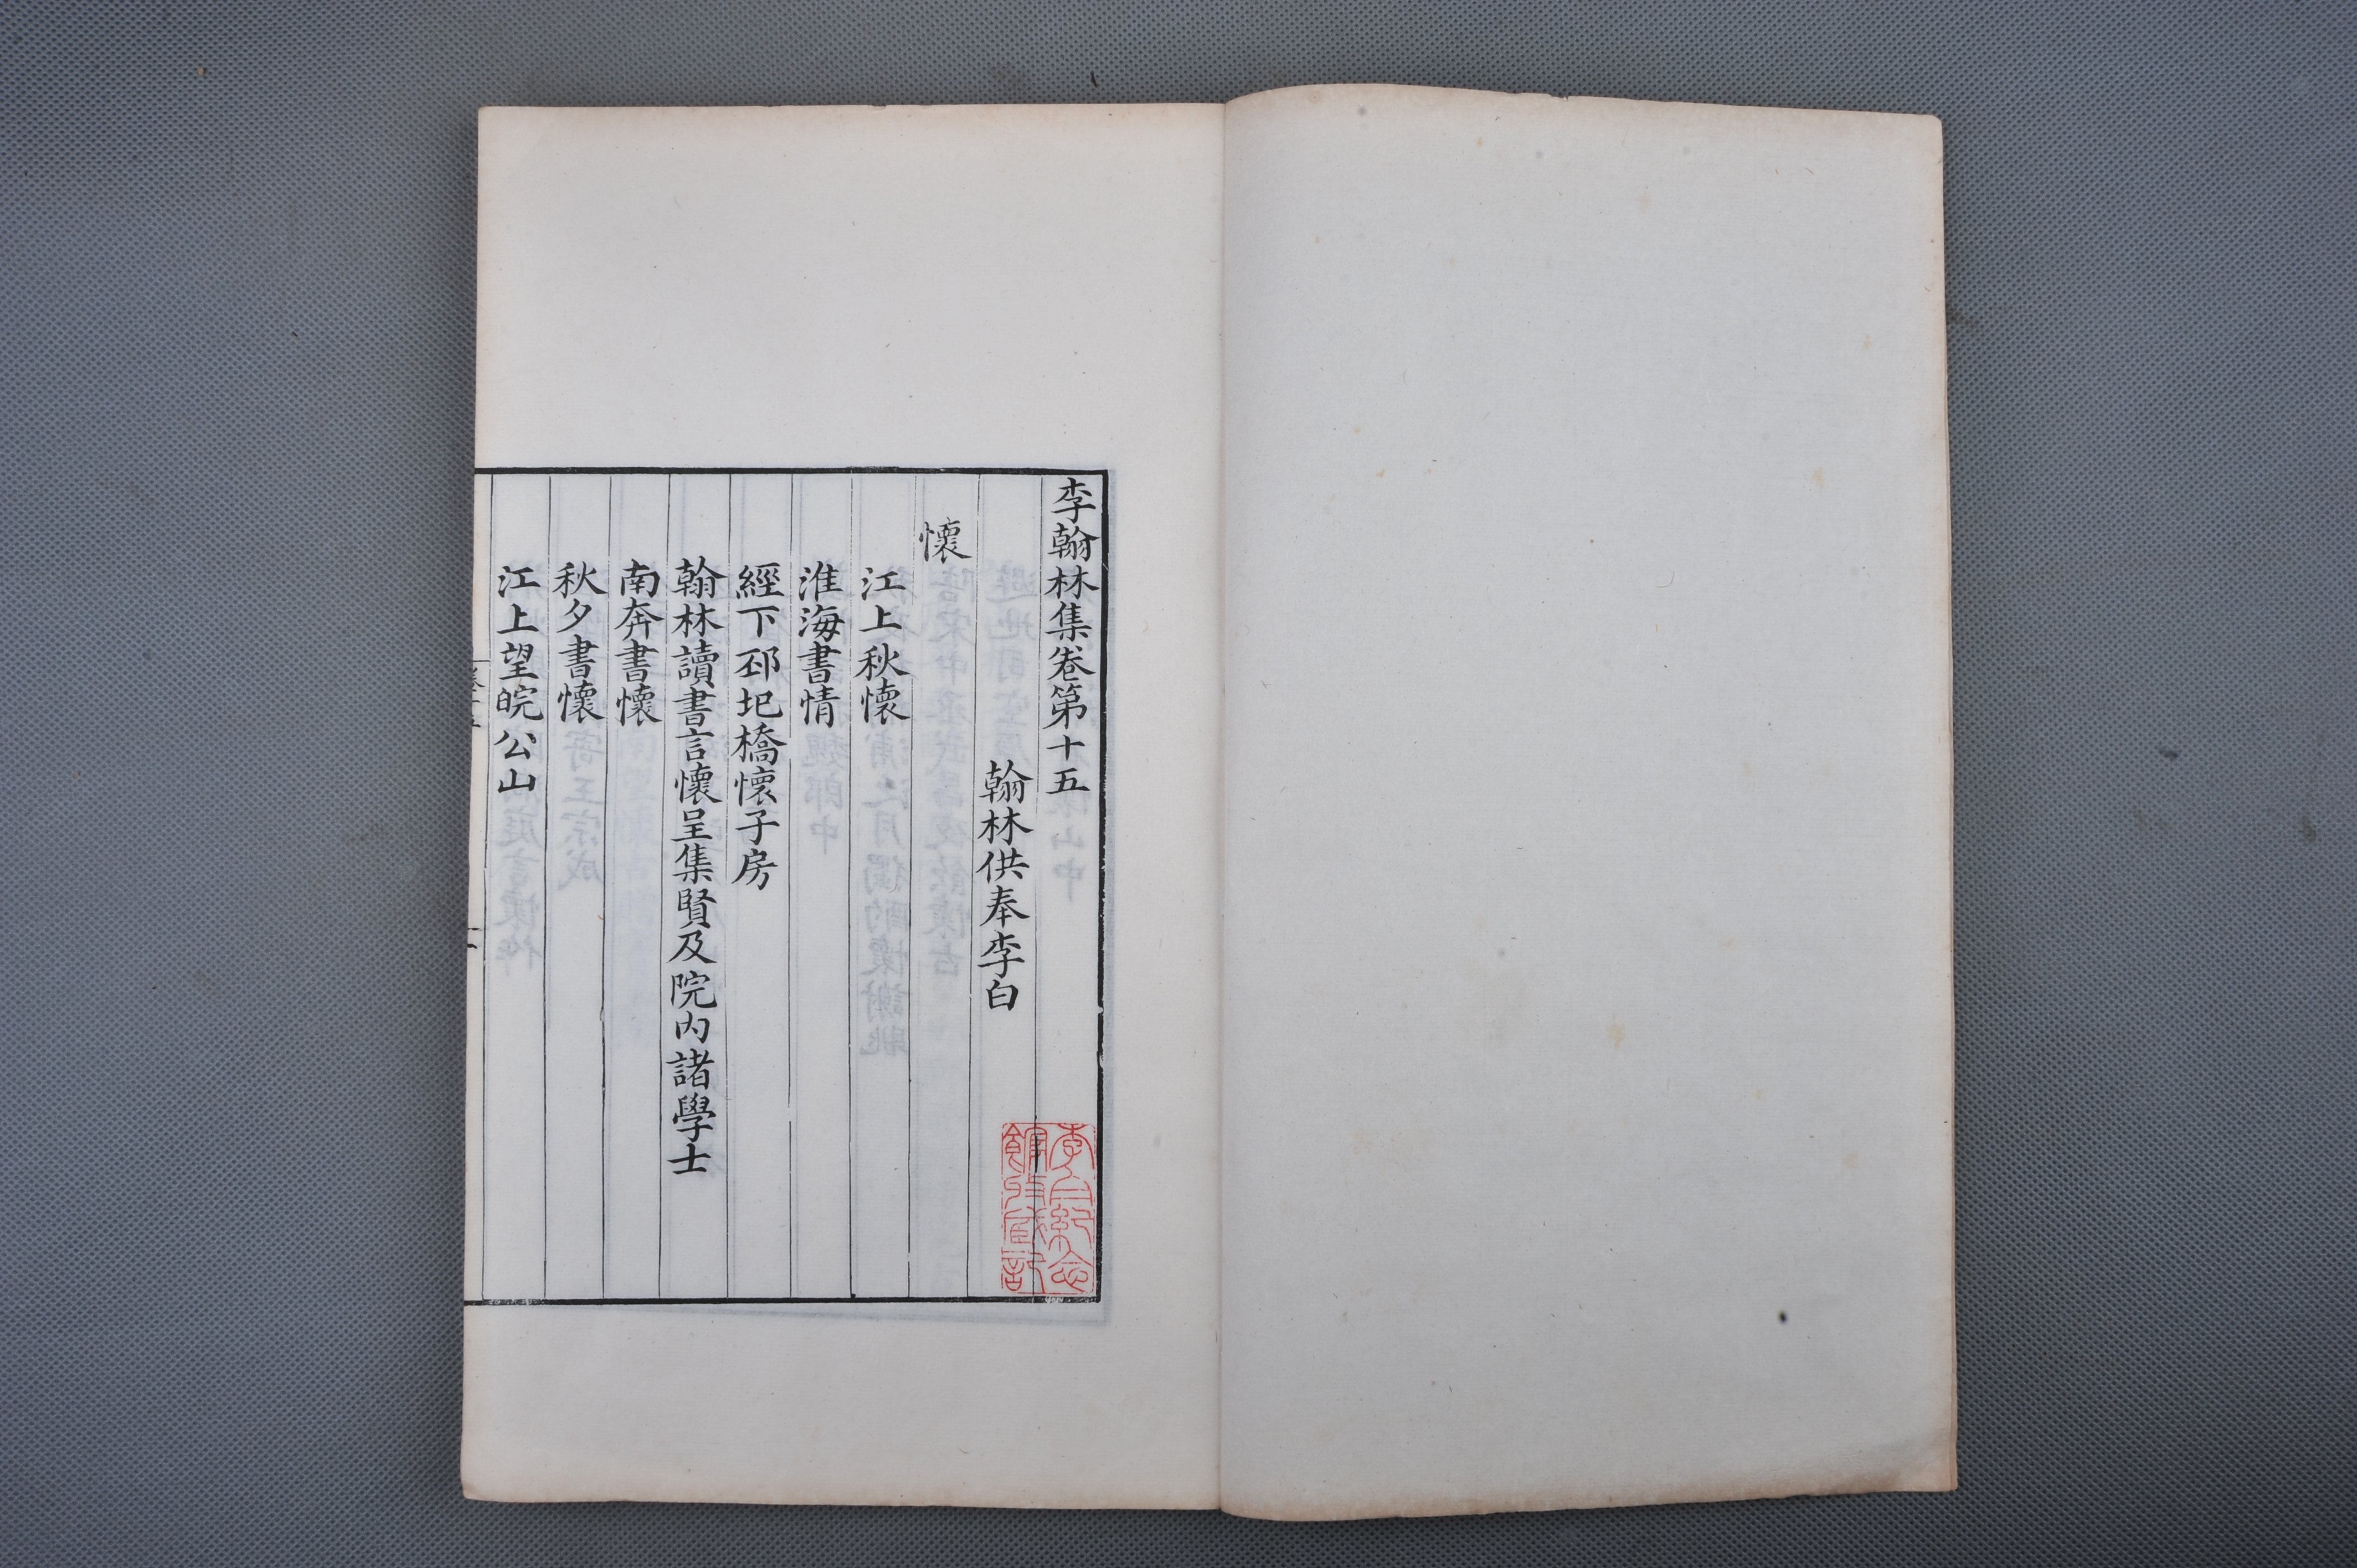 李翰林集卷第十五
翰林供奉李白
懷
江上秋懷
淮海書情
經下邳圯橋懷子房
翰林讀書言懷呈集賢及院內諸學士
南奔書懷
秋夕書懷
江上望皖公山
李白紀念
館收藏記